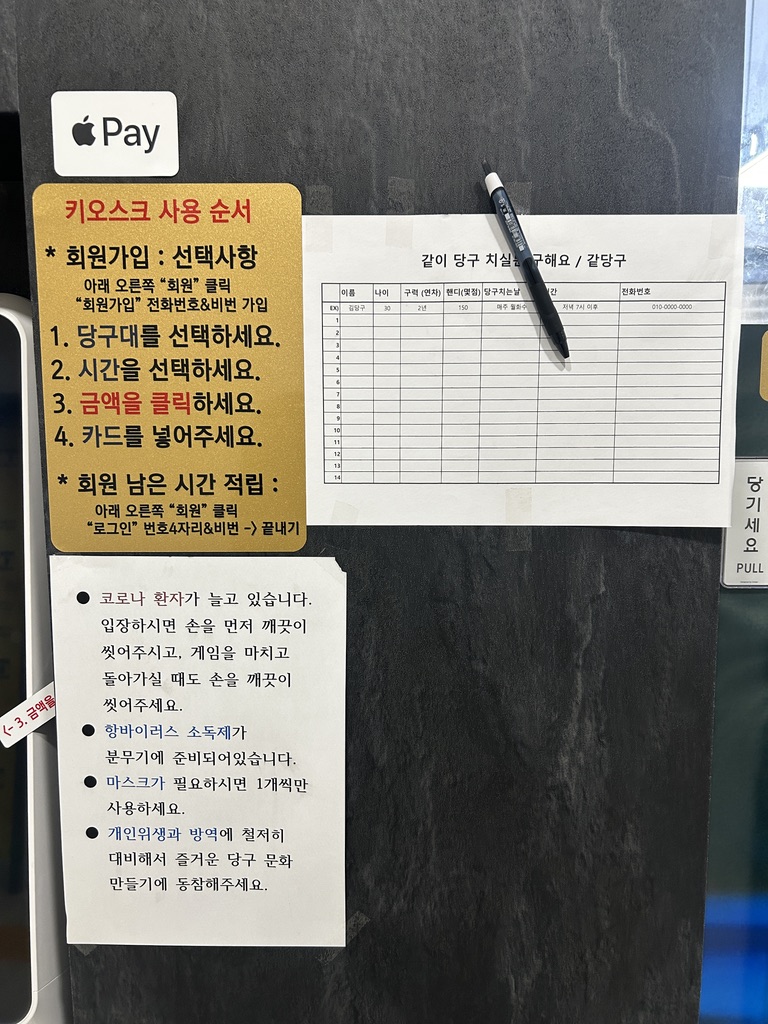 Pay
키오스크 사용 순서
* 회원가입 : 선택사항
아래 오른쪽 “회원” 클릭
“회원가입” 전화번호&비번 가입
1. 당구대를 선택하세요.
2. 시간을 선택하세요.
3. 금액을 클릭하세요.
4. 카드를 넣어주세요.
* 회원 남은 시간 적립 :
아래 오른쪽 “회원” 클릭
“로그인” 번호4자리&비번 -> 끝내기
같이 당구 치실 구해요 / 같당구
이름 나이 구력 (연차) 핸디(몇점) 당구치는날 전화번호
EX) 김당구 30 2년 150 매주 월화수 저녁 7시 이후 010-0000-0000
1
2
3
4
5
6
7
8
9
10
11
12
13
14
당기세요
PULL
● 코로나 환자가 늘고 있습니다.
입장하시면 손을 먼저 깨끗이
씻어주시고, 게임을 마치고
돌아가실 때도 손을 깨끗이
씻어주세요.
● 항바이러스 소독제가
분무기에 준비되어있습니다.
● 마스크가 필요하시면 1개씩만
사용하세요.
● 개인위생과 방역에 철저히
대비해서 즐거운 당구 문화
만들기에 동참해주세요.
<- 3. 금액을